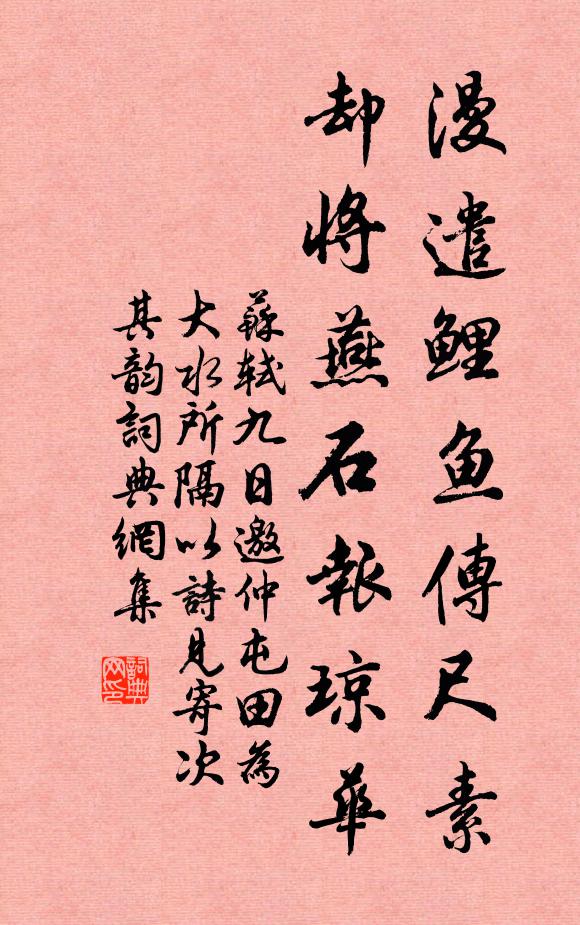 漫遣鲤鱼傳尺素
却將燕石報琼華
蘇軾九日邀仲屯田為
大水所隔以詩見寄次
其韵詞典網集
詞典网印